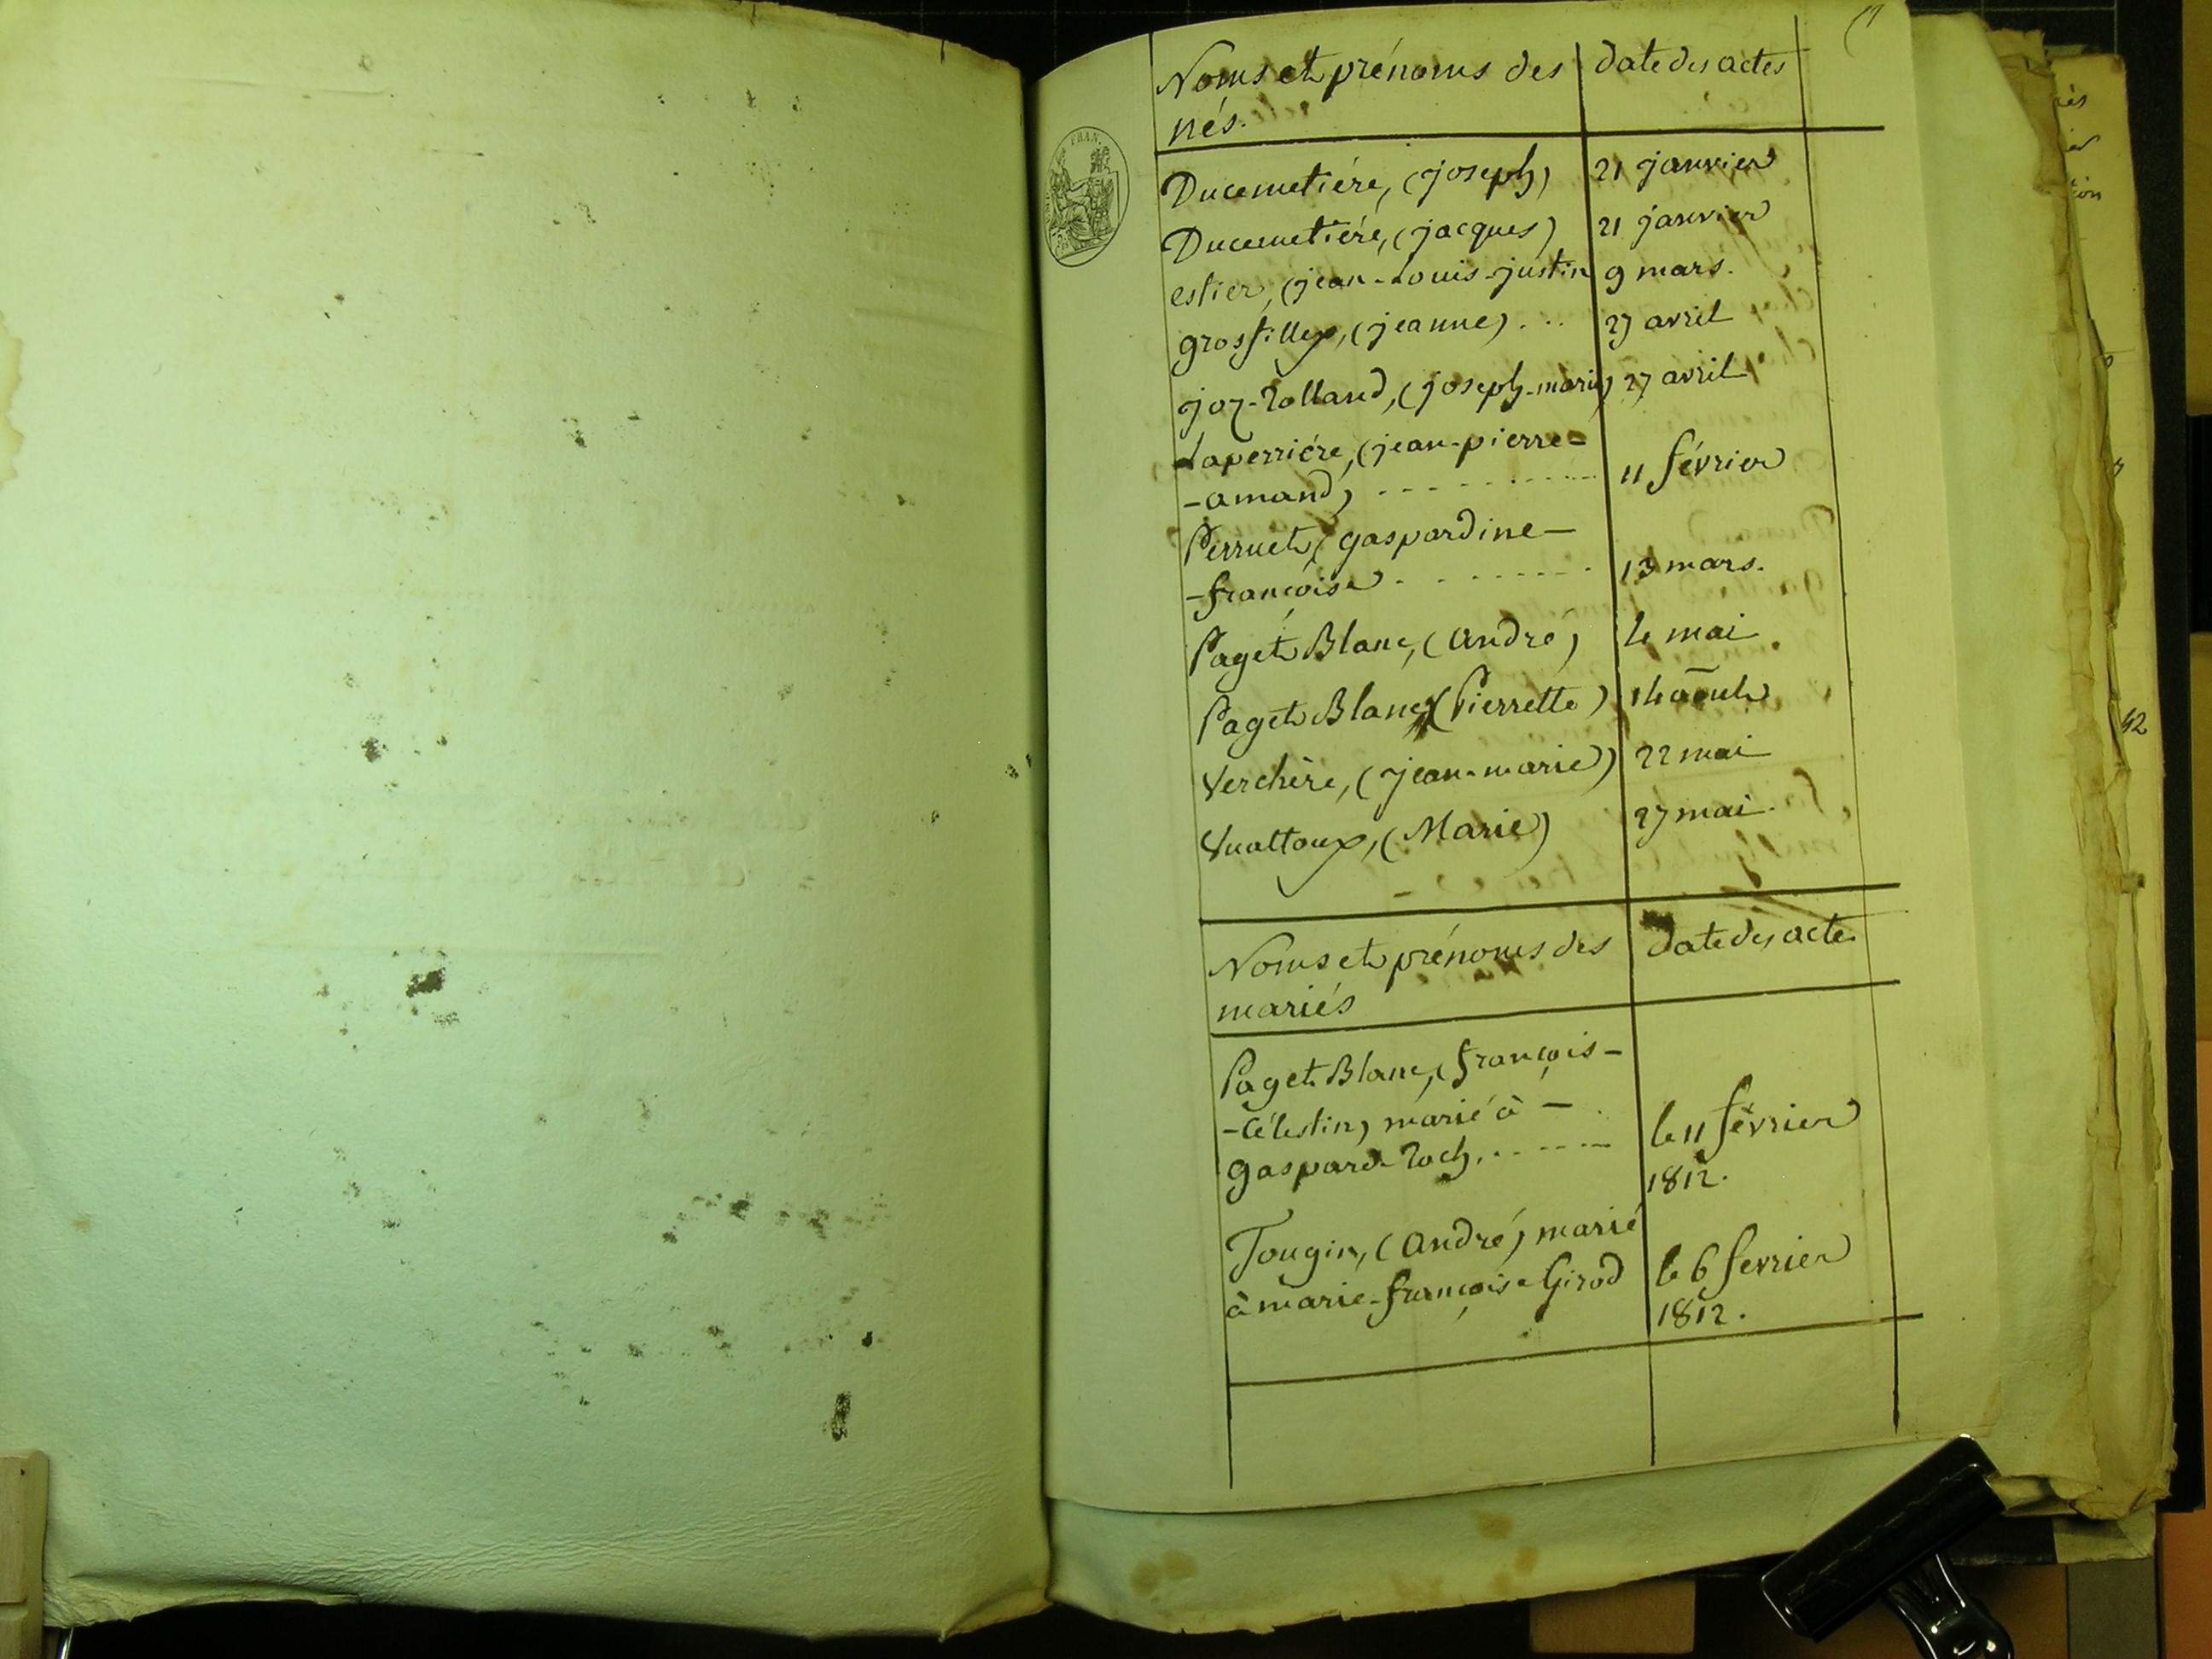 Noms et prénoms des | date des actes
nés.
FRAN.
Ducemetiére, (joseph) | 21 janvier
Ducemetiére, (jacques) | 21 janvier
estier, (jean-Louis-justin | 9 mars.
grosfillex, (jeanne) . .. | 27 avril
joz-Rolland, (joseph-marie) | 27 avril
Laperriére, (jean-pierre-
-amand) - - - - - - - - - | 11 février
Perruet, (gaspardine-
-françoise - - - - - - - | 13 mars.
Paget Blanc, (andré) | le mai
Paget Blanc, (Pierrette) | 14 aout
Verchère, (jean-marie) | 22 mai
Vuattoux, (Marie) | 27 mai.
Noms et prénoms des | date des actes
mariés
Paget Blanc, (françois-
-Célestin) marié à -
gaspard-Roch. - - - - - | le 11 février
1812.
Tougin, (andré) marié
à marie-françoise Girod | le 6 fevrier
1812.
42